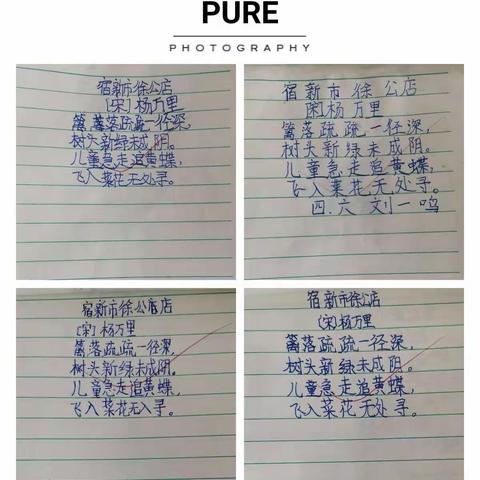 PURE
PHOTOGRAPHY
宿新市徐公店
[宋]杨万里
篱落疏疏一径深,
树头新绿未成阴。
儿童急走追黄蝶,
飞入菜花无处寻。
宿新市徐公店
[宋]杨万里
篱落疏疏一径深,
树头新绿未成阴。
儿童急走追黄蝶,
飞入菜花无处寻。
四.六 刘一鸣
宿新市徐公店
[宋]杨万里
篱落疏疏一径深,
树头新绿未成阴。
儿童急走追黄蝶,
飞入菜花无入寻。
宿新市徐公店
[宋]杨万里
篱落疏疏一径深,
树头新绿未成阴。
儿童急走追黄蝶,
飞入菜花无处寻。